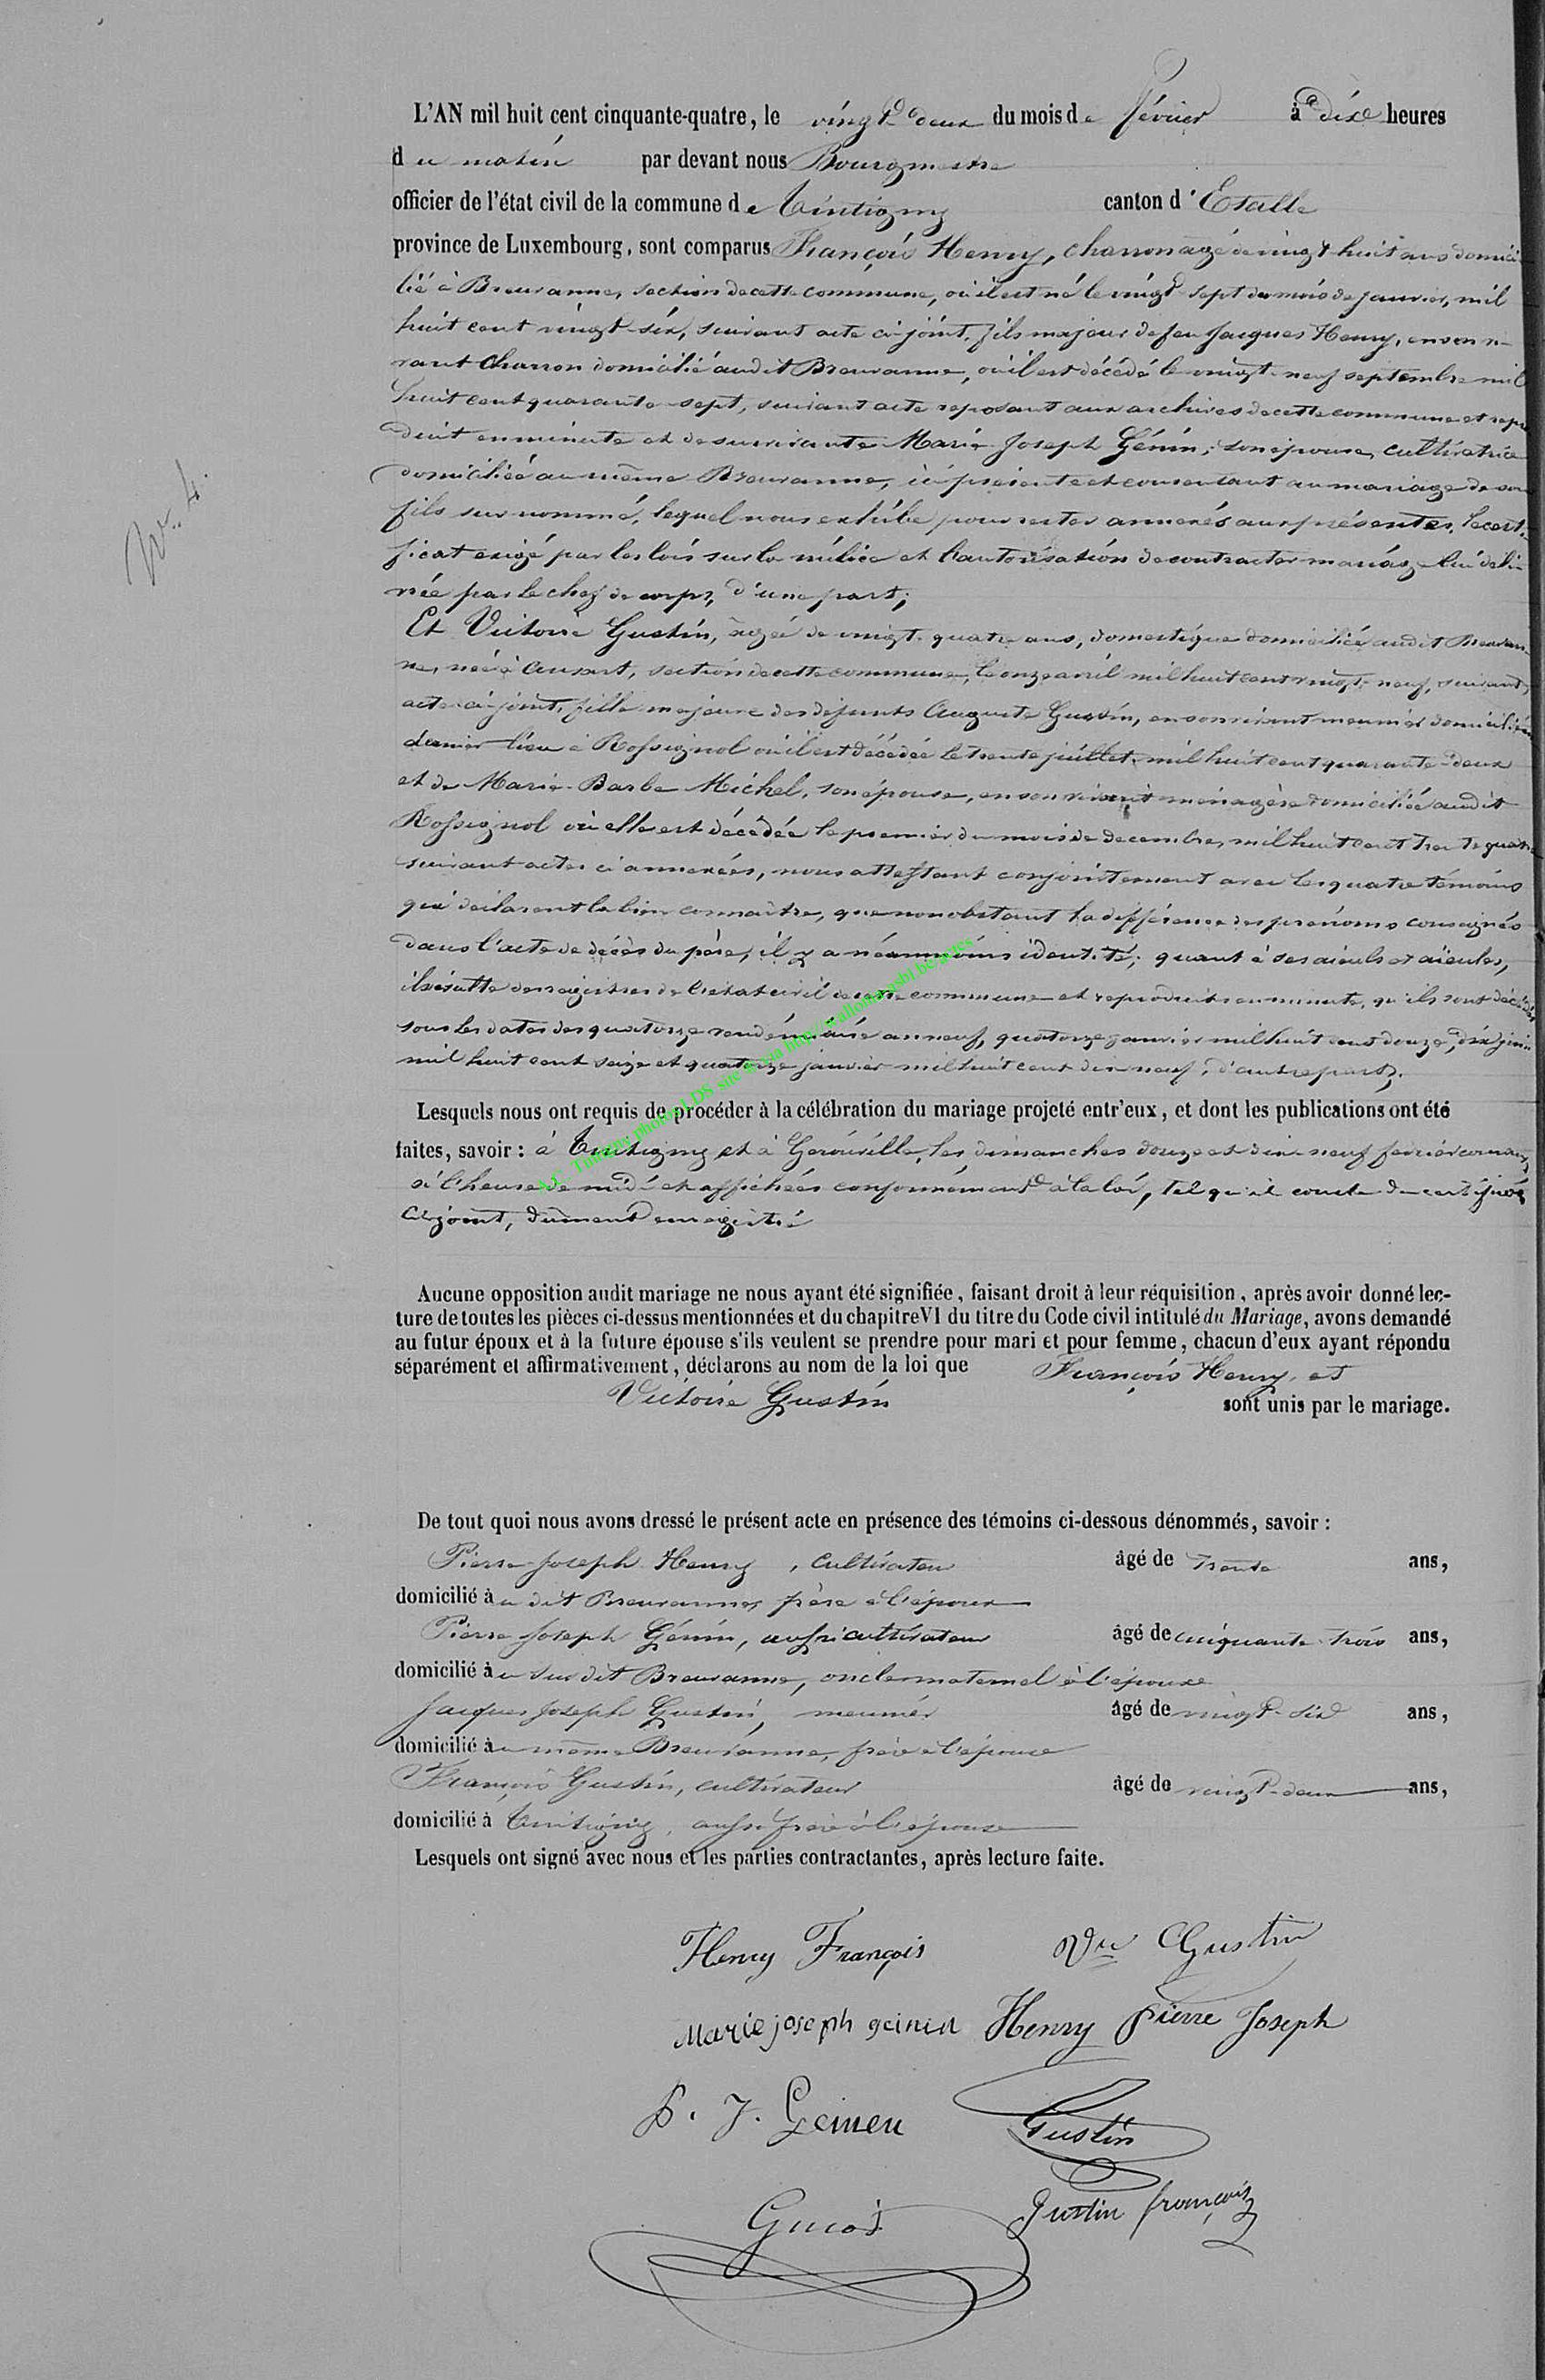 L'AN mil huit cent cinquante-quatre, le vingt deux du mois de février à dix heures
du matin par devant nous Bourgmestre
officier de l'état civil de la commune de Tintigny canton d'Etalle
province de Luxembourg, sont comparus François Henry, charron agé de vingt huit ans domici-
lié à Breuvanne, section de cette commune, où il est né le vingt-sept du mois de janvier, mil
huit cent vingt-six, suivant acte ci-joint, fils majeur de feu Jacques Henry, en son vi-
vant charron domicilié audit Breuvanne, où il est décédé le vingt-neuf septembre mil
huit cent quarante-sept, suivant acte reposant aux archives de cette commune et repro
duit en minute et de survivante Marie-Joseph Génin, son épouse, cultivatrice
domiciliée au même Breuvanne, ici présente et consentant au mariage de son
fils sur nommé, lequel nous exhibe pour rester annexés aux présentes, le certi-
ficat exigé par les lois sur la milice et l'autorisation de contracter mariage lui déli-
vrée par le chef de corps, d'une part;
Et Victoire Gustin, agée de vingt-quatre ans, domestique domiciliée audit Breuvan-
ne, née à Ansart, section de cette commune, le onze avril mil huit cent vingt-neuf, suivant
acte ci-joint, fille majeure des défunts Auguste Gustin, en son vivant meunier domicilié en
dernier lieu à Rossignol où il est décédée le trente juillet, mil huit cent quarante-deux
et de Marie-Barbe Michel, son épouse, en son vivant ménagère domiciliée audit
Rossignol où elle est décédée le premier du mois de decembre, mil huit cent trente quatre
suivant actes ci annexées, nous attestant conjointement avec les quatre témoins
qui déclarent la bien connaître, que nonobstant la différence des prénoms consignés
dans l'acte de décès du père, il y a néanmoins identité; quant à ses aïeuls et aïeules,
il résulte des registres de l'état civil de cette commune et reproduits en minute, qu'ils sont décédés
sous les dates des quatorze vendémiaire an neuf, quatorze janvier mil huit cent douze, dix juin
mil huit cent seize et quatorze janvier mil huit cent dix neuf, d'autre part.
A.C. Tintigny photos LDS site via http://wallonia-asbl.be/actes
Lesquels nous ont requis de procéder à la célébration du mariage projeté entr'eux, et dont les publications ont été
faites, savoir : à Tintigny et à Gerouville, les dimanches douze et dix-neuf février courant,
à l'heure de midi et affichées conformément à la loi, tel qu'il conste du certificat
ci-joint, dûment enregistré
Aucune opposition audit mariage ne nous ayant été signifiée, faisant droit à leur réquisition, après avoir donné lec-
ture de toutes les pièces ci-dessus mentionnées et du chapitre VI du titre du Code civil intitulé du Mariage, avons demandé
au futur époux et à la future épouse s'ils veulent se prendre pour mari et pour femme, chacun d'eux ayant répondu
séparément et affirmativement, déclarons au nom de la loi que François Henry et
Victoire Gustin sont unis par le mariage.
De tout quoi nous avons dressé le présent acte en présence des témoins ci-dessous dénommés, savoir :
Pierre-Joseph Henry, cultivateur âgé de trente ans,
domicilié audit Breuvanne, frère à l'époux
Pierre Joseph Génin, aussi cultivateur âgé de cinquante-trois ans,
domicilié au sus dit Breuvanne, oncle maternel à l'époux
Jacques Joseph Gustin, meunier âgé de vingt-six ans,
domicilié au même Breuvanne, frère à l'épouse
François Gustin, cultivateur âgé de vingt-deux ans,
domicilié à Tintigny, aussi frère à l'épouse
Lesquels ont signé avec nous et les parties contractantes, après lecture faite.
N°. 4.
Henry François Vre Gustin
Marie joseph geinen Henry Pierre Joseph
P. J. Geinen Gustin
Gustin françois